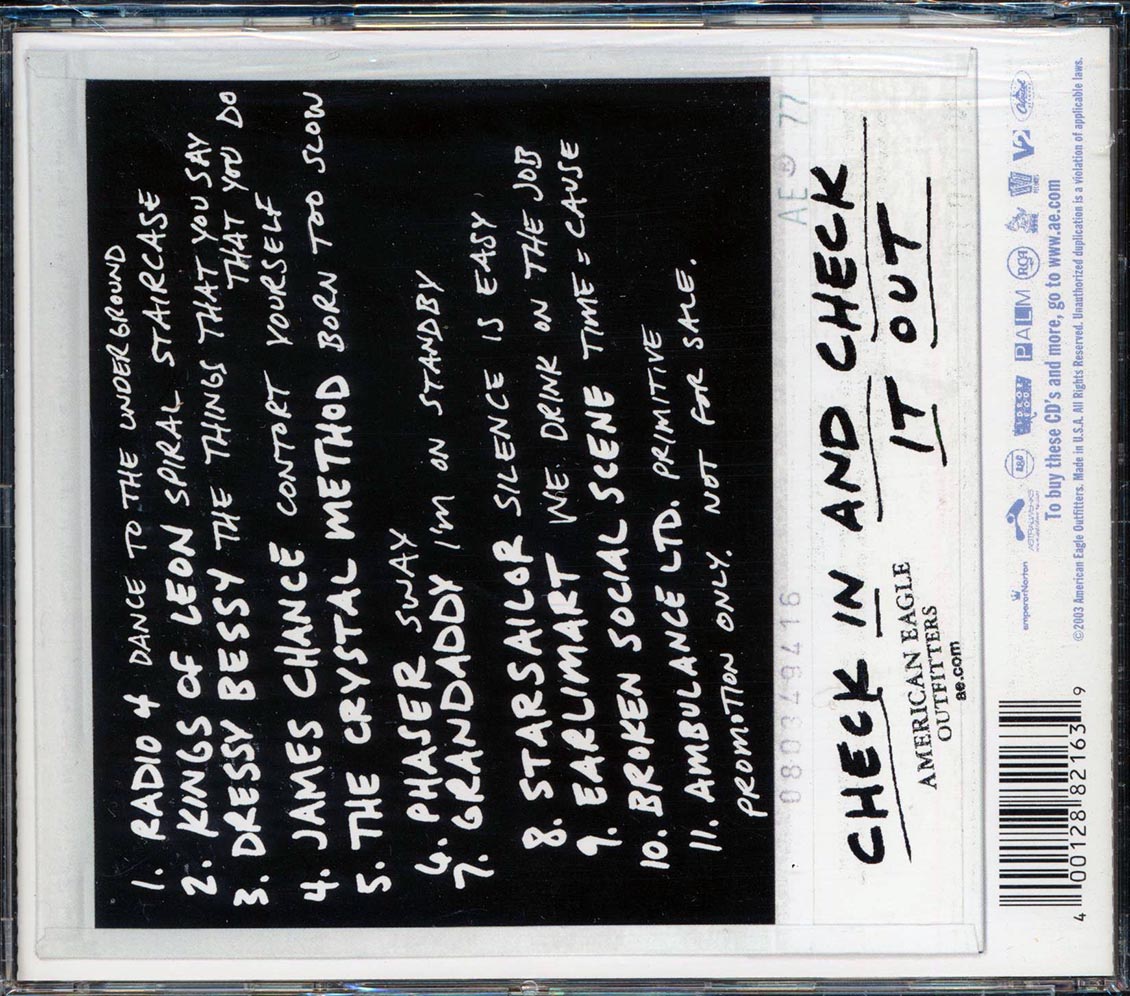 1. RADIO 4 DANCE TO THE UNDERGROUND
2. KINGS OF LEON SPIRAL STAIRCASE
3. DRESSY BESSY THE THINGS THAT YOU SAY
THAT YOU DO
4. JAMES CHANCE CONTORT YOURSELF
5. THE CRYSTAL METHOD BORN TOO SLOW
6. PHASER SWAY
7. GRANDADDY I'M ON STANDBY
8. STARSAILOR SILENCE IS EASY
9. EARLIMART WE DRINK ON THE JOB
10. BROKEN SOCIAL SCENE TIME = CAUSE
11. AMBULANCE LTD. PRIMITIVE
PROMOTION ONLY. NOT FOR SALE.
080349416
AE® 77
CHECK IN AND CHECK
IT OUT
AMERICAN EAGLE
OUTFITTERS
ae.com
emperorNorton
ASTRALWERKS
PALM
RCA
V2
Capitol
To buy these CD's and more, go to www.ae.com
©2003 American Eagle Outfitters. Made in U.S.A. All Rights Reserved. Unauthorized duplication is a violation of applicable laws.
4 00128 82163 9